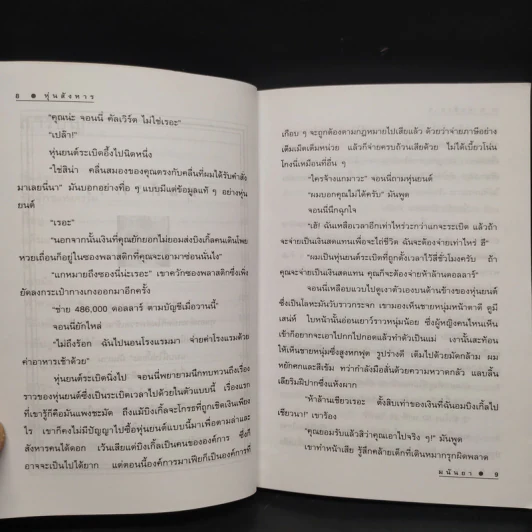 8 ● หุ่นสังหาร
“คุณน่ะ จอนนี่ คัลเวิร์ต ไม่ใช่เรอะ”
“เปล๊า!”
หุ่นยนต์ระเบิดอึ้งไปนิดหนึ่ง
“ใช่สิน่า คลื่นสมองของคุณตรงกับคลื่นที่ผมได้รับคำสั่ง
มาเลยนี่นา” มันบอกอย่างทื่อ ๆ แบบมีแต่ข้อมูลแท้ ๆ อย่างหุ่น
ยนต์
“เรอะ”
“นอกจากนั้นเงินที่คุณยักยอกไม่ยอมส่งบิงเกิ้ลคนเดินโพย
หวยเถื่อนก็อยู่ในซองพลาสติกที่คุณจะเอามาซ่อนนั่นไง”
“แกหมายถึงซองนี่น่ะเรอะ” เขาควักซองพลาสติกซึ่งเพิ่ง
ยัดลงกระเป๋ากางเกงออกมาอีกครั้ง
“ช่าย 486,000 ดอลลาร์ ตามบัญชีเมื่อวานนี้”
จอนนี่ยักไหล่
“ไม่ถึงร็อก ฉันไปนอนโรงแรมมา จ่ายค่าโรงแรมด้วย
ค่าอาหารเช้าด้วย”
หุ่นยนต์ระเบิดนิ่งไป จอนนี่พยายามนึกทบทวนถึงเรื่อง
ราวของหุ่นยนต์ซึ่งเป็นระเบิดเวลาไปด้วยในตัวแบบนี้ เรื่องแรก
ที่เขารู้ก็คือมันแพงชะมัด ถึงแม้บิงเกิ้ลจะโกรธที่ถูกเชิดเงินเพียง
ไร เขาก็คงไม่มีปัญญาไปซื้อหุ่นยนต์แบบนี้มาเพื่อตามล่าและ
สังหารคนได้ดอก เว้นเสียแต่บิงเกิ้ลเป็นคนขององค์การ ซึ่งก็
อาจจะเป็นไปได้ยาก แต่ตอนนี้องค์การมาเฟียก็เป็นองค์การที่
เกือบ ๆ จะถูกต้องตามกฎหมายไปเสียแล้ว ด้วยว่าจ่ายภาษีอย่าง
เต็มเม็ดเต็มหน่วย แล้วก็จ่ายครบถ้วนเสียด้วย ไม่ได้เบี้ยวโน่น
โกงนี่เหมือนที่อื่น ๆ
“ใครจ้างแกมาวะ” จอนนี่ถามหุ่นยนต์
“ผมบอกคุณไม่ได้ครับ” มันพูด
จอนนี่นึกฉุกใจ
“เฮ้! ฉันเหลือเวลาอีกเท่าไหร่วะกว่าแกจะระเบิด แล้วถ้า
จะจ่ายเป็นเงินสดแทนเพื่อจะไถ่ชีวิต ฉันจะต้องจ่ายเท่าไหร่ ฮึ”
“ผมเป็นหุ่นยนต์ระเบิดที่ถูกตั้งเวลาไว้สี่ชั่วโมงครับ ถ้า
คุณจะจ่ายเป็นเงินสดแทน คุณก็จะต้องจ่ายห้าล้านดอลลาร์”
จอนนี่เหลือบแวบไปดูเงาตัวเองบนด้านข้างของหุ่นยนต์
ซึ่งเป็นโลหะมันวับราวกระจก เขามองเห็นชายหนุ่มหน้าตาดี ดูมี
เสน่ห์ ใบหน้านั้นอ่อนเยาว์ราวหนุ่มน้อย ซึ่งผู้หญิงคนไหนเห็น
เข้าก็อยากจะเอาไปกกไปกอดแล้วทำตัวเป็นแม่ เงานั้นสะท้อน
ให้เห็นชายหนุ่มซึ่งสูงหกฟุต รูปร่างดี เต็มไปด้วยมัดกล้าม ผม
หยักศกและสีเข้ม ทว่ากำลังมือสั่นด้วยความหวาดกลัว แลบลิ้น
เลียริมฝีปากซึ่งแห้งผาก
“ห้าล้านเชียวเรอะ ตั้งสิบเท่าของเงินที่ฉันอมบิงเกิ้ลไป
เชียวนา!” เขาร้อง
“คุณยอมรับแล้วสิว่าคุณเอาไปจริง ๆ!” มันพูด
เขาทำหน้าเสีย รู้สึกคล้ายเด็กที่เดินหมากรุกผิดพลาด
มนันยา ● 9